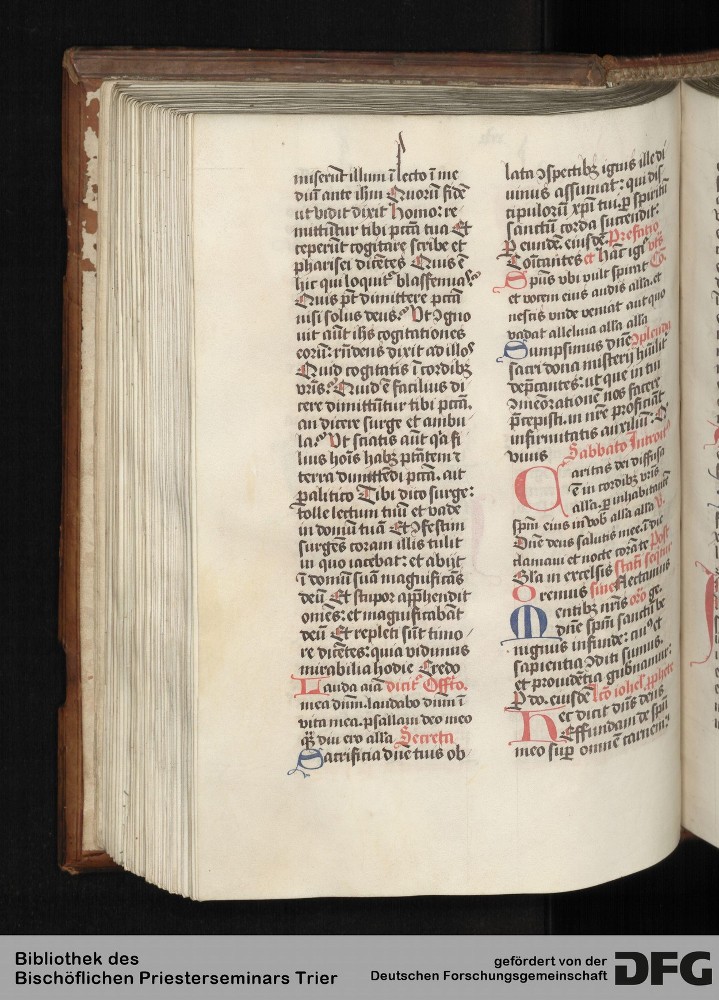 miserūt illum ī lecto ī me
diū ante ihm Quorū fidē
ut vidit dixit Homo: re
mittūtur tibi pctā tua Et
ceperūt cogitare scribe et
pharisei dicētes Quis ē
hic qui loquit᷒ blasfemias?
Quis pt dimittere pctā
nisi solus deus? Vt ɔgno
uit aūt ihs cogitationes
eorū: rn̄dens dixit ad illos
Quid cogitatis ī cordibꝫ
vr̄is? Quid ē facilius di
cere dimittūtur tibi pctā.
an dicere surge et ambu
la? Vt sciatis aūt qꝛ fi
lius hoīs habꝫ ptātem ī
terra dimittēdi pctā. ait
palitico Tibi dico surge:
tolle lectum tuū et vade
in domū tuā Et ɔfestim
surgēs coram illis tulit
in quo iacebat: et abijt
ī domū suā magnificās
deū Et stupor app̄hendit
omēs: et magnificabāt
deū Et repleti sūt timo
re dicētes: quia vidimus
mirabilia hodie Credo
Lauda aīa dicit᷒ Offto.
mea dūm. laudabo dūm ī
vita mea. psallam deo meo
qꝫ diu ero alla Secreta
Sacrificia dn̄e tuis ob
lata ɔspectibꝫ ignis ille di
uinus assumat: qui dis
cipulorū xp̄i tui. ꝑ spiritū
sanctū corda succendit:
ꝑ eundē. eiusdē. Prefatio
Coīcantes et hāc igr̄ vts̄
Spūs vbi vult spirat Co.
et vocem eius audis alla. et
nescis vnde veniat aut quo
vadat alleluia alla alla
Sumpsimus dn̄e ɔplenda
sacri dona misterij hūilit
dep̄cantes: ut que in tui
ɔmēorationē nos facere
p̄cepisti. in nr̄e proficiāt
infirmitatis auxiliū: Q
viuis Sabbato Introit᷒
Caritas dei diffusa
ē in cordibꝫ vr̄is
alla. ꝑ inhabitātē
spm̄ eius in vob alla alla V.
Dn̄e deus salutis mee. ī die
clamaui et nocte corā te Post
Gla in excelsis stati seq̄tur
Oremus sine Flectamus
Mentibꝫ nr̄is oro ge.
dn̄e spm̄ sanctū be
nignus infunde: cui᷒ et
sapientia ɔditi sumus.
et prouidētia gubnamur.
ꝑ do. eiusdē Lcō iohel᷒ ꝓphete
Hec dicit dūs deus
Effundam de spū
meo sup omnē carnem:
Bibliothek des
Bischöflichen Priesterseminars Trier
gefördert von der
Deutschen Forschungsgemeinschaft
DFG